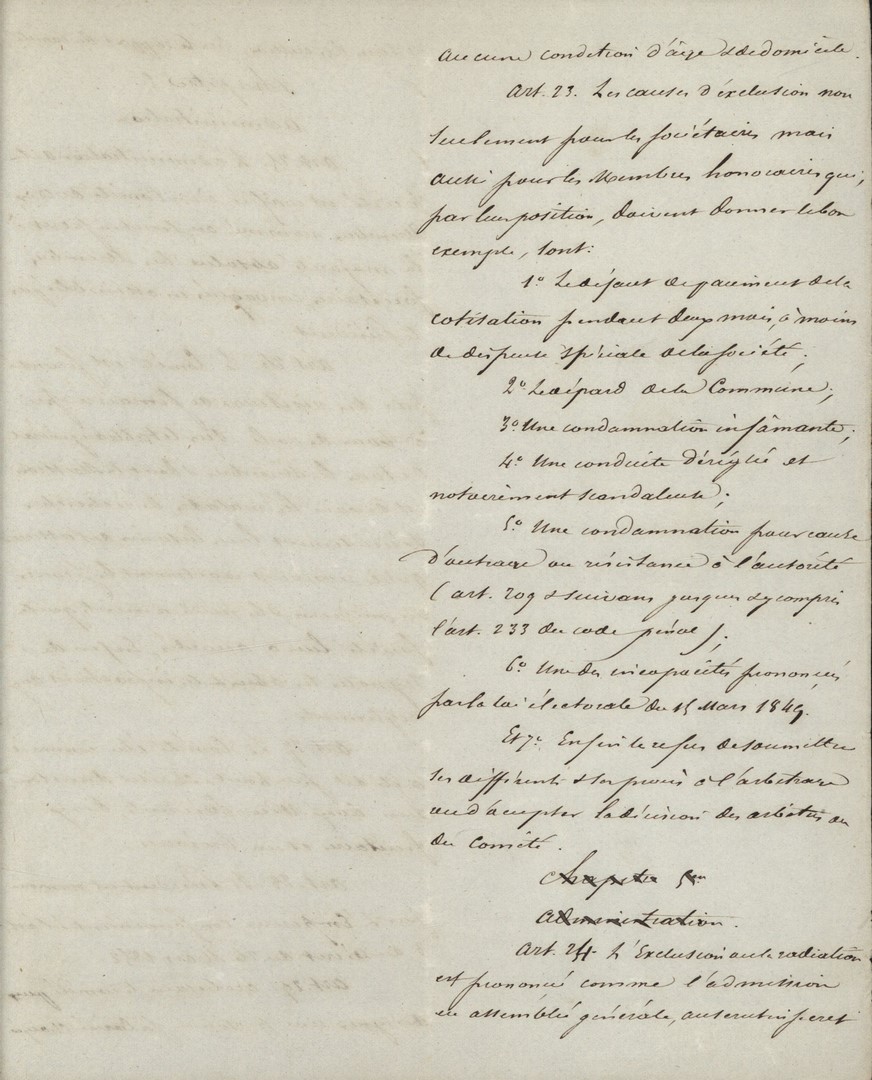 aucune condition d'âge & de domicile.
Art. 23. Les causes d'éxclusion non
seulement pour les sociétaires mais
aussi pour les Membres honoraires qui,
par leur position, doivent donner le bon
exemple, sont:
1° Le défaut de paiement de la
cotisation pendant deux mois, à moins
de dispense spéciale de la société;
2° Le départ de la Commune;
3° Une condamnation infâmante;
4° Une conduite déréglée et
notoirement scandaleuse;
5° Une condamnation pour cause
d'outrage ou résistance à l'autorité
(art. 209 & suivans jusques & y compris
l'art. 233 du code pénal);
6° Une des incapacités prononcées
par la loi électorale du 15 Mars 1849.
Et 7° Enfin le refus de soumettre
ses différents & ses procès à l'arbitrage
ou d'accepter la décision des arbitres ou
du Comité.
Chapitre 5me
Administration.
Art. 24. L'Exclusion ou la radiation
est prononcée comme l'admission
en assemblée générale, au scrutin secret